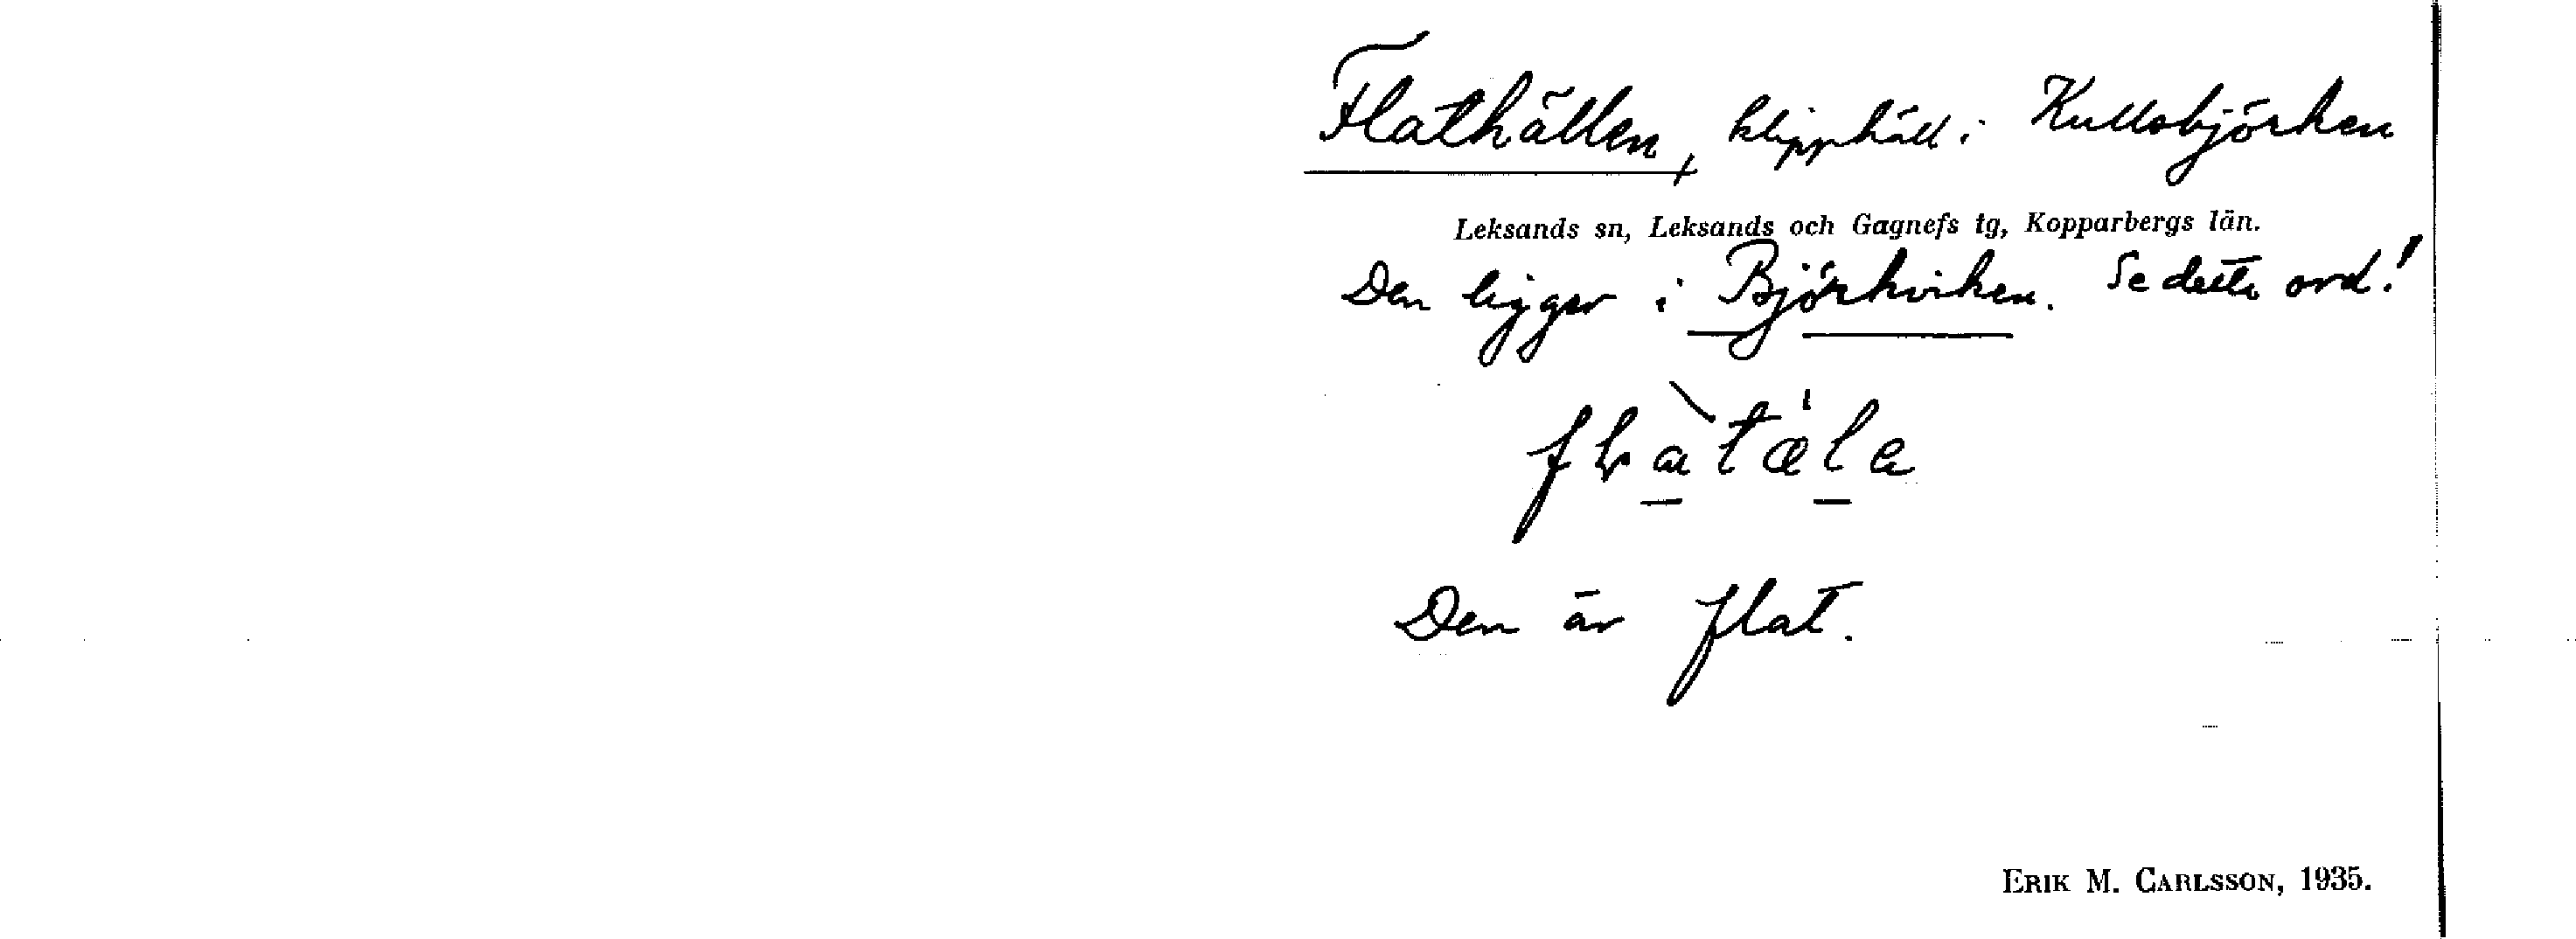 Flathällen, klipphäll i Kullsbjörken
Leksands sn, Leksands och Gagnefs tg, Kopparbergs län.
Den ligger i Björkviken. Se detta ord!
Den är flat.
ERIK M. CARLSSON, 1935.